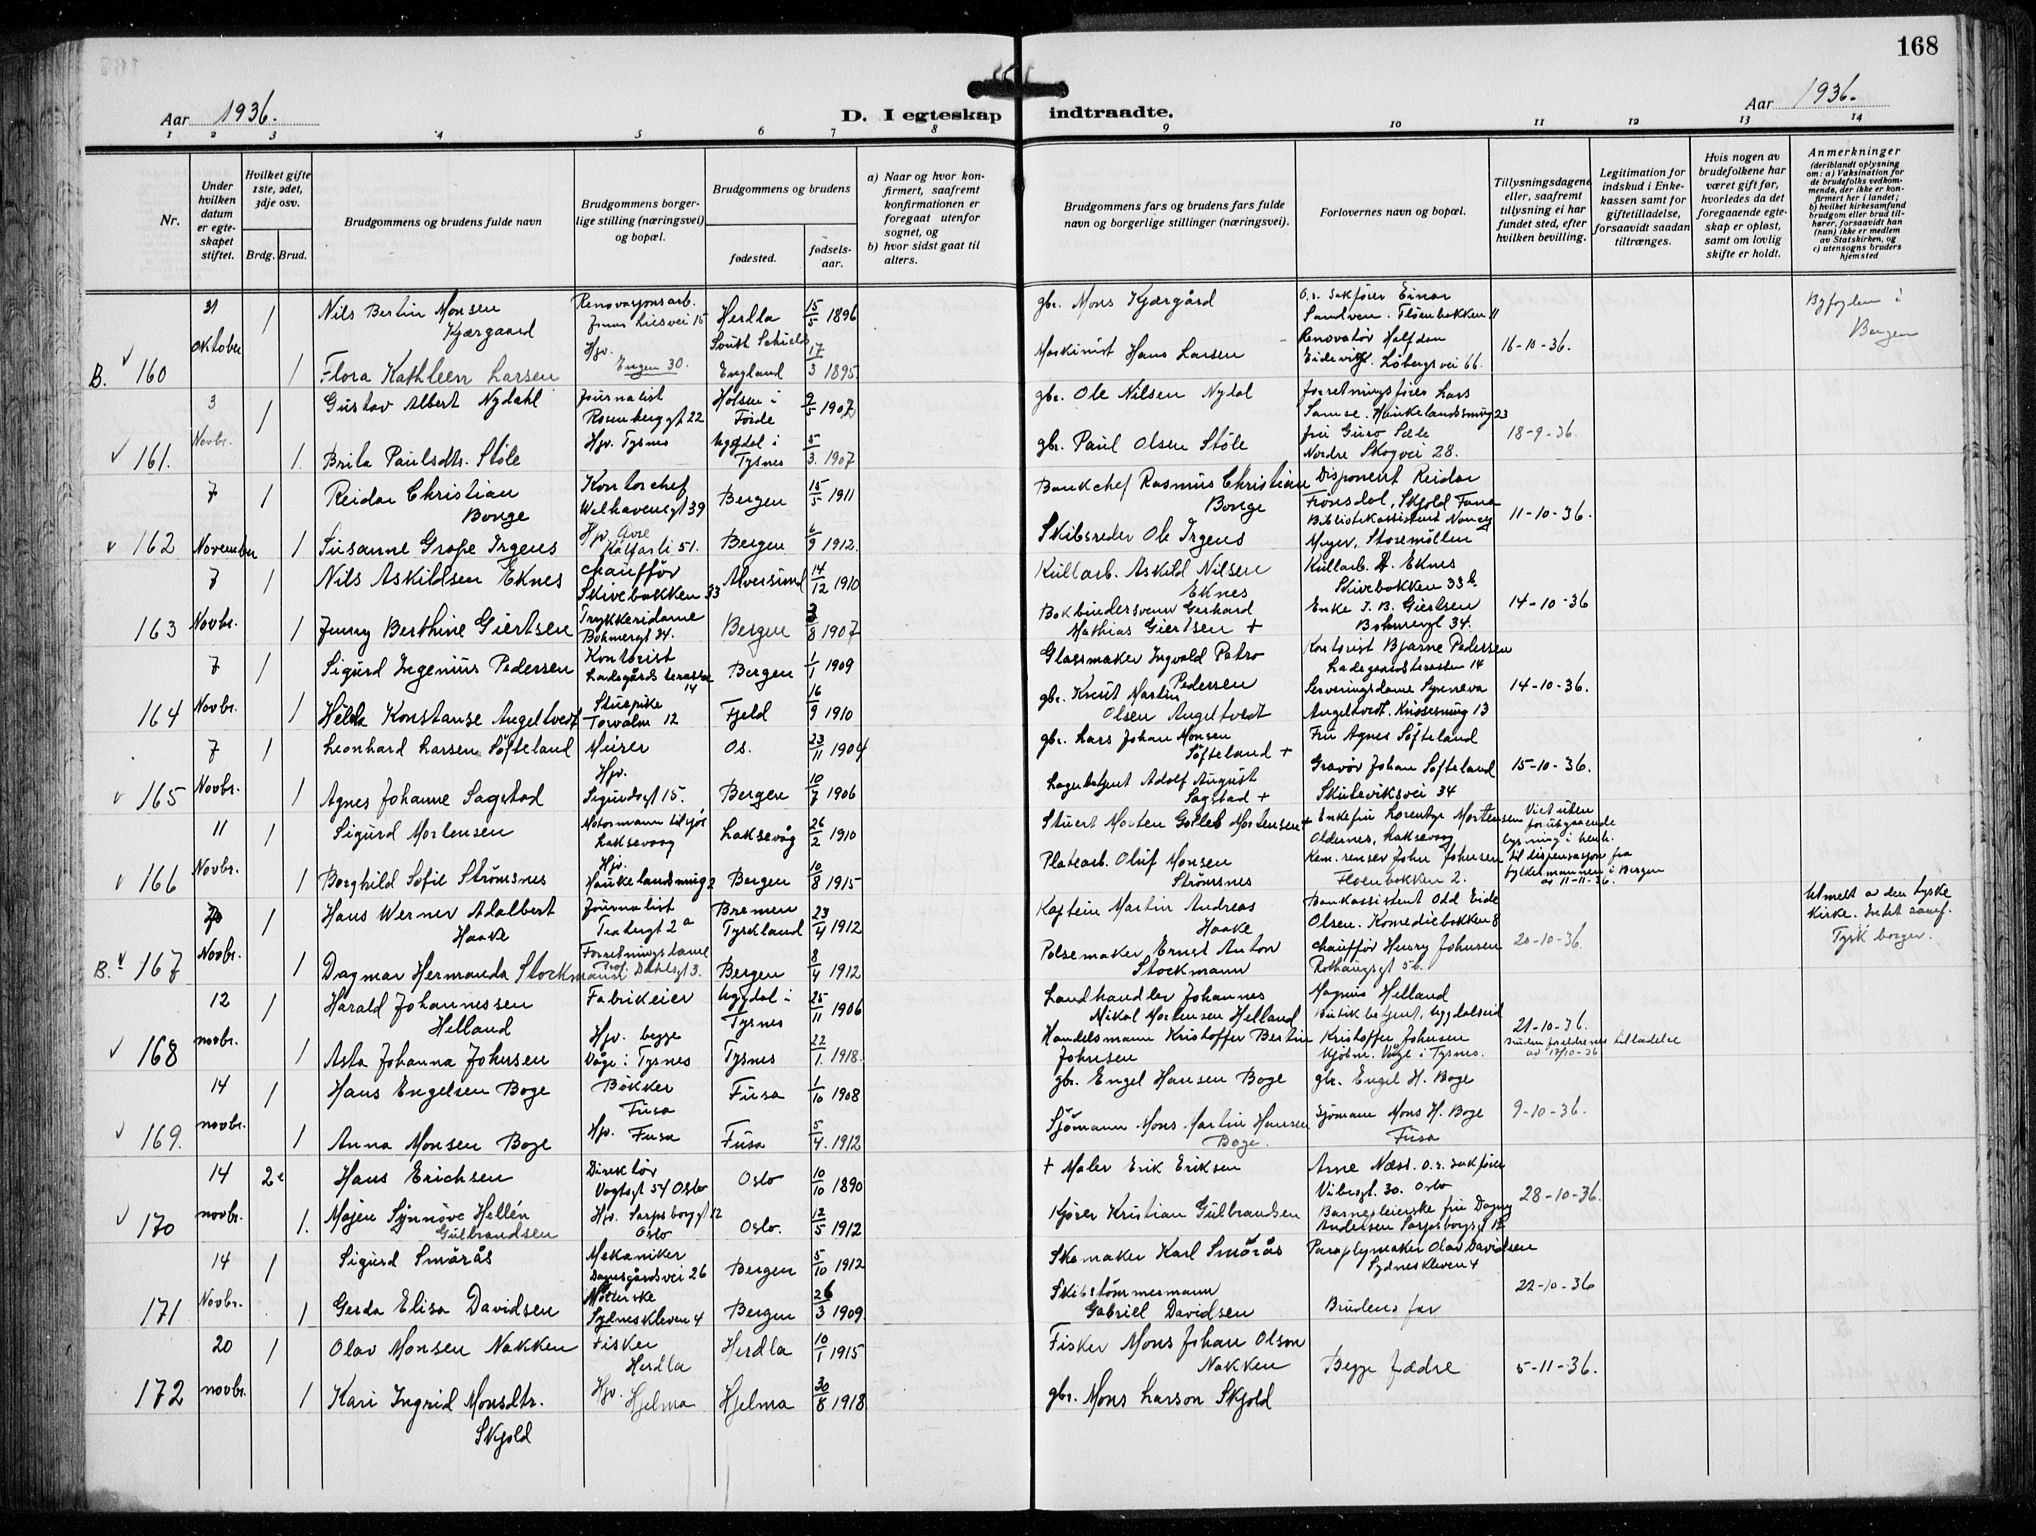 168
Aar 1936.
D. I egteskap indtraadte.
Aar 1936.
1 2 3 4 5 6 7 8 9 10 11 12 13 14
Nr.
Under hvilken datum er egteskapet stiftet.
Hvilket gifte 1ste, 2det, 3dje osv.
Brdg. Brud.
Brudgommens og brudens fulde navn
Brudgommens borgerlige stilling (næringsvei) og bopæl.
Brudgommens og brudens
fødested.
fødselsaar.
a) Naar og hvor konfirmert, saafremt konfirmationen er foregaat utenfor sognet, og
b) hvor sidst gaat til alters.
Brudgommens fars og brudens fars fulde navn og borgerlige stillinger (næringsvei).
Forlovernes navn og bopæl.
Tillysningsdagene eller, saafremt tillysning ei har fundet sted, efter hvilken bevilling.
Legitimation for indskud i Enkekassen samt for giftetilladelse, forsaavidt saadan tiltrænges.
Hvis nogen av brudefolkene har været gift før, hvorledes da det foregaaende egteskap er opløst, samt om lovlig skifte er holdt.
Anmerkninger (deriblandt oplysning om: a) Vaksination for de brudefolks vedkommende, der ikke er konfirmert her i landet; b) hvilket kirkesamfund brudgom eller brud tilhører, forsaavidt han (hun) ikke er medlem av Statskirken, og c) utensogns bruders hjemsted
B. 160 31 oktober 1 Nils Bertin Monsen Kjærgaard Renovasjonsarb. Jonas Liesvei 15 Herdla 15/5 1896 gbr. Mons Kjærgård O.r. sakfører Einar Sandven. Fløenbakken 11 16-10-36. Byfogden i Bergen
1 Flora Kathleen Larsen Hjv. Engen 30. South Schiels England 17/3 1895 Maskinist Hans Larsen Renovatør Halfdan Eidevik. Løbergsvei 66.
161. 3 Novbr. 1 Gustav Albert Nydahl Journalist Rosenberggt 22 Holsen i Førde 9/5 1907 gbr. Ole Nilsen Nydal forretningsfører Lars Samse. Haukelandssmug 23 18-9-36.
1. Brita Paulsdtr. Støle Hjv. Tysnes Uggdal i Tysnes 5/3. 1907 gbr. Paul Olsen Støle fru Guro Sæle Nordre Skogvei 28.
162 7 November 1 Reidar Christian Bonge Kontorchef Welhavensgt 39 Bergen 15/5 1911 Bankchef Rasmus Christian Bonge Disponent Reidar Frønsdal, Skjold Fana 11-10-36.
1 Susanne Grope Irgens Hjv. Øvre Kalfarli 51. Bergen 6/9 1912. Skibsreder Ole Irgens Bibliotekassistent Nancy Meyer, Storemøllen
163 7 Novbr. 1 Nils Askildsen Eknes chauffør Skivebakken 33 Alversund 14/12 1910 Kullarb. Askild Nilsen Eknes Kullarb. A. Eknes Skivebakken 33b. 14-10-36
1 Jenny Berthine Giertsen Trykkeridame Bøhmergt 34. Bergen 3/8 1907 Bokbindersvenn Gerhard Mathias Giertsen + Enke J. B. Giertsen Bohmergt 34.
164 7 Novbr. 1 Sigurd Ingenius Pedersen Kontorist Ladegårds terasse 14 Bergen 1/1 1909 Glassmaker Ingvald Petro Pedersen Kontorist Bjarne Pedersen Ladegaardsterassen 14 14-10-36.
1 Helda Konstanse Angeltvedt Stuepike Torvalm 12 Fjeld 16/9 1910 gbr. Knut Martin Olsen Angeltvedt Serveringsdame Synneva Angeltvedt. Knøsesmug 13
165 7 Novbr. 1 Leonhard Larsen Søfteland Murer Os. 23/11 1904 gbr. Lars Johan Monsen Søfteland + Fru Agnes Søfteland 15-10-36.
1 Agnes Johanne Sagstad Hjv. Sigurdsgt 15. Bergen 10/7 1906 Lagerbetjent Adolf August Sagstad + Gravør Johan Søfteland Skuteviksvei 34
166 11 Novbr. 1 Sigurd Mortensen Motormann tilsjøs Laksevaag Laksevåg 26/2 1910 Stuert Morten Gotleb Mortensen + Enkefru Lorentze Mortensen Oldernes, Laksevaag Viet uten forutgaaende lysning i henh. til dispensasjon fra fylkesmannen i Bergen av 11-11-36.
1 Borghild Sofie Strømsnes Hjv. Haukelandsmug 2 Bergen 10/8 1915 Platearb. Oluf Monsen Strømsnes Kem. renser John Johnsen Fløenbakken 2.
B. 167 Novbr. 1 Hans Werner Adalbert Haake Journalist Teatergt 2a Bremen Tyskland 23/4 1912 Kaptein Martin Andreas Haake Bankassistent Odd Eide Olsen. Komediebakken 8 20-10-36. Utmelt av den tyske kirke. Intet samf. Tysk borger.
1 Dagmar Hermanda Stockmann Forretningsdame Prof. Dahlsgt 3. Bergen 8/4 1912 Pølsemaker Ernst Anton Stockmann chauffør Henry Johnsen Rothaugsgt 5b.
168 12 novbr. 1 Harald Johannessen Helland Fabrikeier Uggdal i Tysnes 25/11 1906 Landhandler Johannes Mikal Mortensen Helland Magnus Helland Butikbetjent, Uggdalseid 21-10-36.
1 Asta Johanna Johnsen Hjv. begge Våge i Tysnes Tysnes 22/1. 1918. Handelsmann Kristoffer Bertin Johnsen Kristoffer Johnsen kjøbm. Våge i Tysnes. Bruden foreldrenes tilladelse av 17/10-36
169. 14 novbr. 1 Hans Engelsen Boge Bøkker Fusa Fusa 1/10 1908 gbr. Engel Hansen Boge gbr. Engel H. Boge 9-10-36.
1 Anna Monsen Boge Hjv. Fusa Fusa 5/4. 1912 Sjømann Mons Martin Hansen Boge. Sjømann Mons H. Boge Fusa
170 14 novbr. 2e Hans Erichsen Direktør Vogtsgt 54 Oslo Oslo 10/10 1890 + Maler Erik Eriksen Arne Næss. O.r. sakfører Vibesgt. 30. Oslo 28-10-36.
1. Majen Synnøve Hellén Gulbrandsen Hjv. Sarpsborggt 12 Oslo Oslo. 12/5 1912 Kjører Kristian Gulbrandsen Barnepleierske fru Dagny Andersen Sarpsborggt 12
171 14 Novbr. 1 Sigurd Smørås Mekaniker Damsgårdsvei 26 Bergen 5/10 1912 Skomaker Karl Smørås Paraplymaker Olav Davidsen Sydneskleven 4 22-10-36
1 Gerda Elisa Davidsen Møtterske Sydneskleven 4 Bergen 26/3 1909. Skibstømmermann Gabriel Davidsen Brudens far
172 20 novbr. 1 Olav Monsen Nakken Fisker Herdla Herdla 10/1 1915 Fisker Mons Johan Olson Nakken Begge fædre 5-11-36.
1 Kari Ingrid Monsdtr. Skjold Hjv. Hjelma Hjelma 30/8 1918 gbr. Mons Larson Skjold